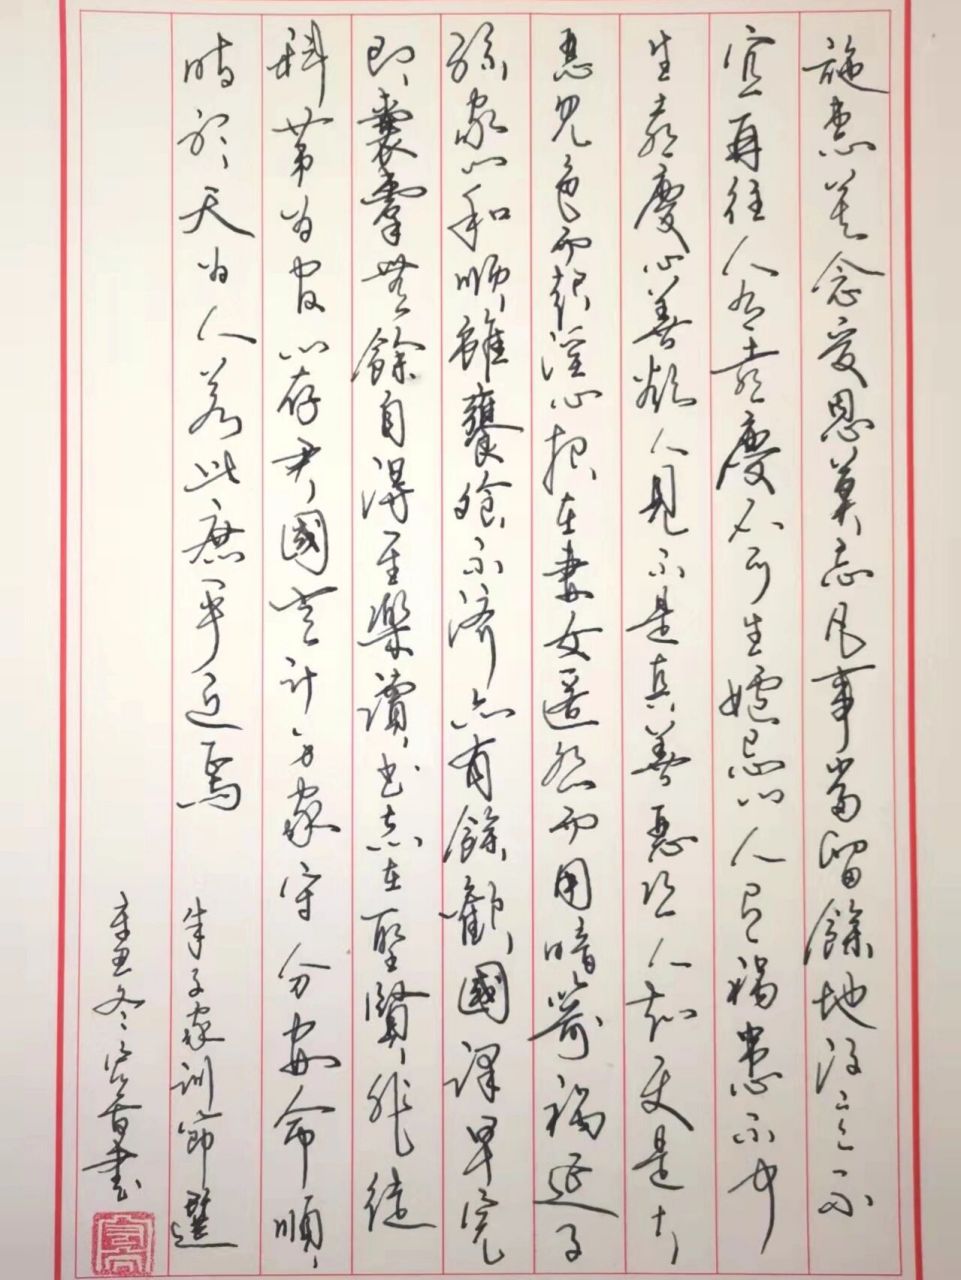 施惠無念受恩莫忘凡事當留餘地得意不
宜再往人有喜慶不可生妒忌心人有禍患不可
生喜慶心善欲人見不是真善惡恐人知更是大
惡見色而起淫心報在妻女匿怨而用暗箭禍延子
孫家門和順雖饔飧不濟亦有餘歡國課早完
即囊橐無餘自得至樂讀書志在聖賢非徒
科第為官心存君國豈計身家守分安命順
時聽天為人若此庶乎近焉
朱子家訓節選
辛丑冬 書